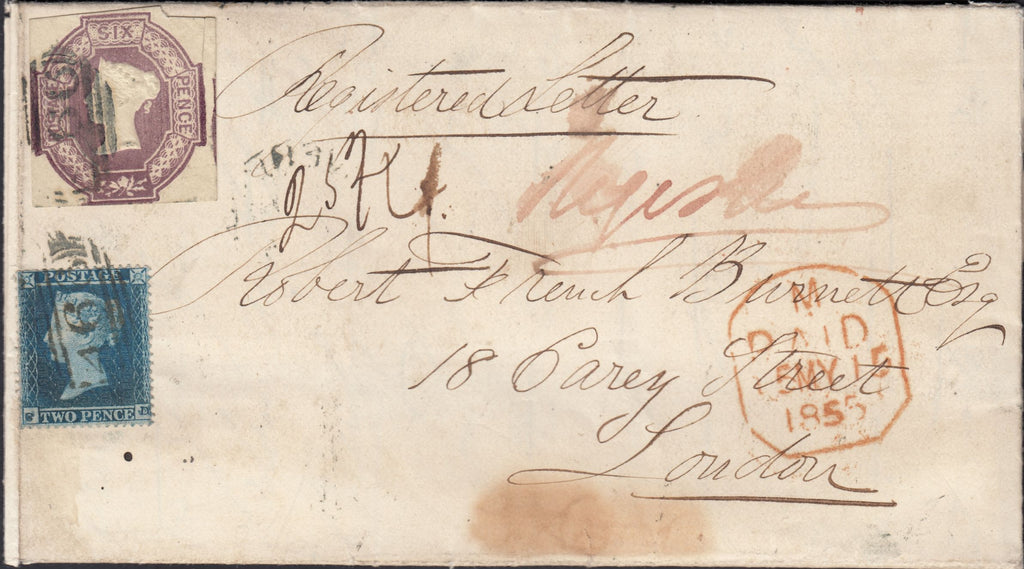 SIX PENCE
Registered Letter
Register
Robert French Burnett Esq
18 Carey Street
London
POSTAGE
TWO PENCE
C D
M
PAID
MY 15
1855